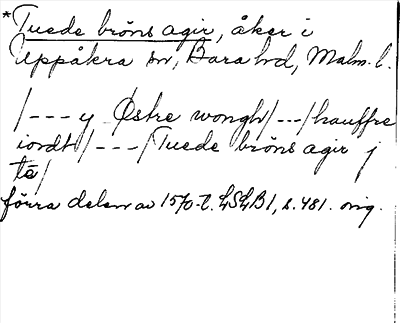 *Tuede bröns agir, åker i
Uppåkra sn, Bara hd, Malm. l.
/---y Østre wongh/---/hauffre
iordt/---/Tuede bröns agir j
tē/
förra delen av 1570-t. LSLB1, s. 481. orig.